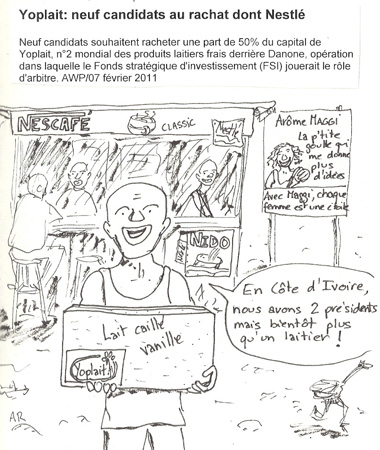 Yoplait: neuf candidats au rachat dont Nestlé
Neuf candidats souhaitent racheter une part de 50% du capital de
Yoplait, n°2 mondial des produits laitiers frais derrière Danone, opération
dans laquelle le Fonds stratégique d'investissement (FSI) jouerait le rôle
d'arbitre. AWP/07 février 2011
NESCAFÉ
CLASSIC
Nestlé
Arôme MAGGI
La p'tite
goutte qui
me donne
plus
d'idées
Avec Maggi, chaque
femme est une étoile
NIDO
En Côte d'Ivoire,
nous avons 2 présidents
mais bientôt plus
qu'un laitier !
Lait caillé
vanille
Yoplait
AR